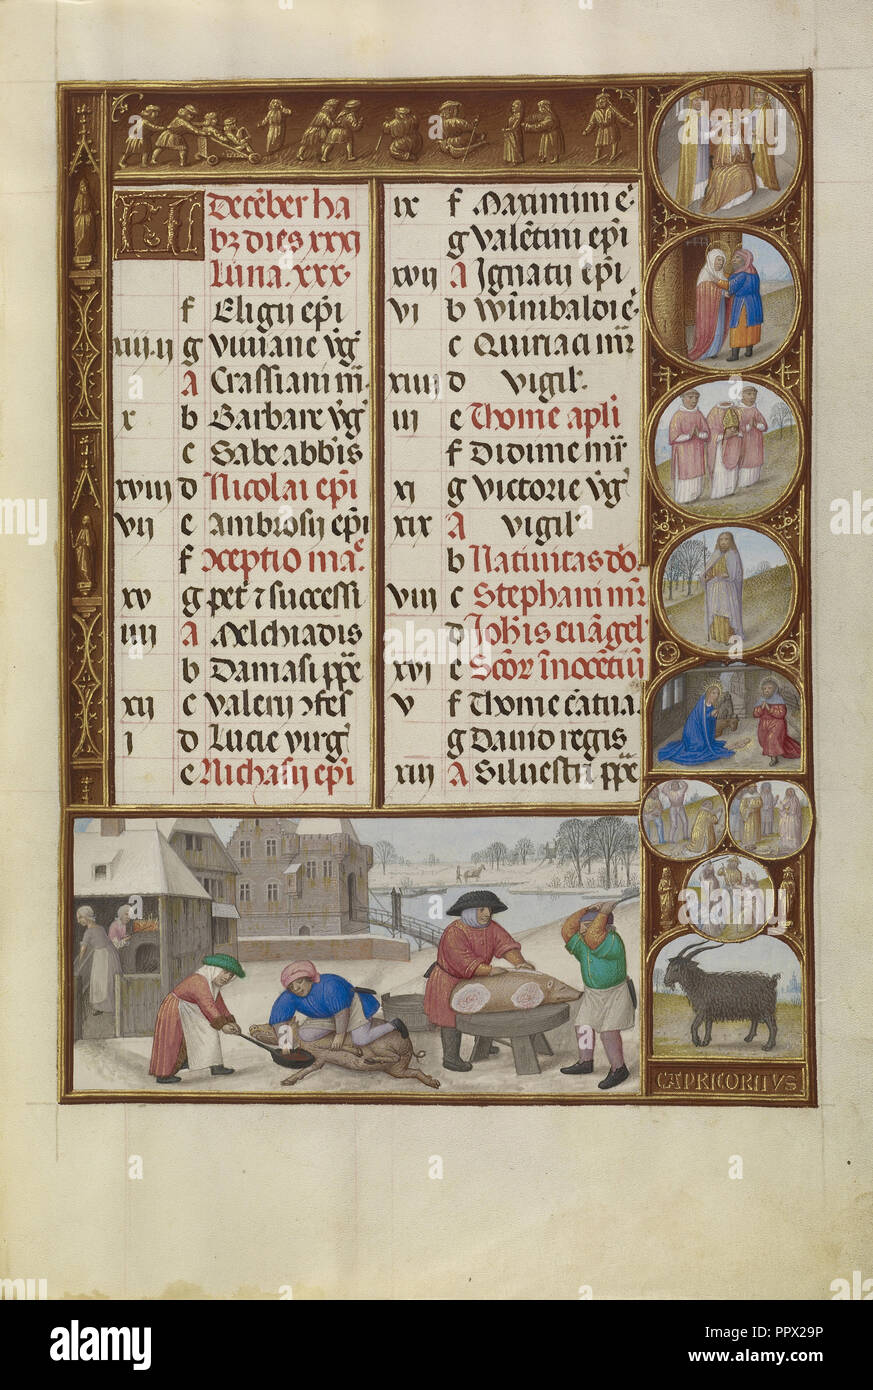 KL Decēber ha
bz dies xxxi
Luna .xxx.
f Eligii epi
xiii.ii g Viviane vg
A Crassiani mr
x b Barbare vg
c Sabe abbis
xviii d Nicolai epi
vii e Ambrosii epi
f Cceptio ma
xv g pet 7 successi
iiii A Melchiadis
b Damasi ppe
xii c Valerii ɔfes
i d Lucie virg
e Nichasii epi
ix f Maximini e
g Valētini epi
xvii A Ignatii epi
vi b Wīnibaldi e
c Quiriaci mr
xiiii d vigil
iii e Thome apli
f Didime mr
xi g Victorie vg
xix A vigil
b Nativitas do
viii c Stephani mr
d Johīs evāgel
xvi e Scōr īnocētiū
v f Thome cātua
g David regis
xiii A Silvestri ppe
CAPRICORNVS
a
alamy
Image ID: PPX29P
www.alamy.com